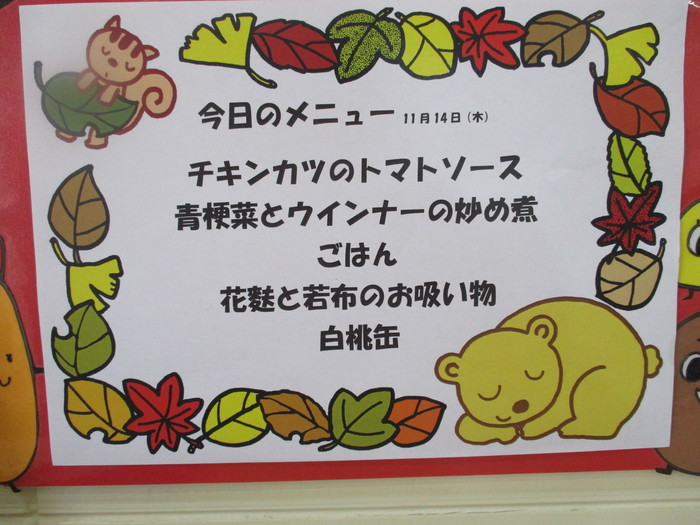 今日のメニュー 11月14日(木)
チキンカツのトマトソース
青梗菜とウインナーの炒め煮
ごはん
花麩と若布のお吸い物
白桃缶